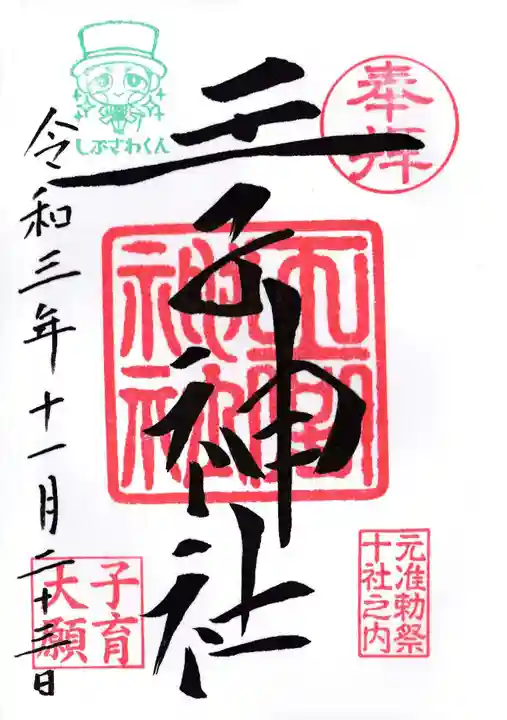 奉拝
元准勅祭
十社之内
王子神社
しぶさわくん
子育
大願
令和三年十一月二十三日